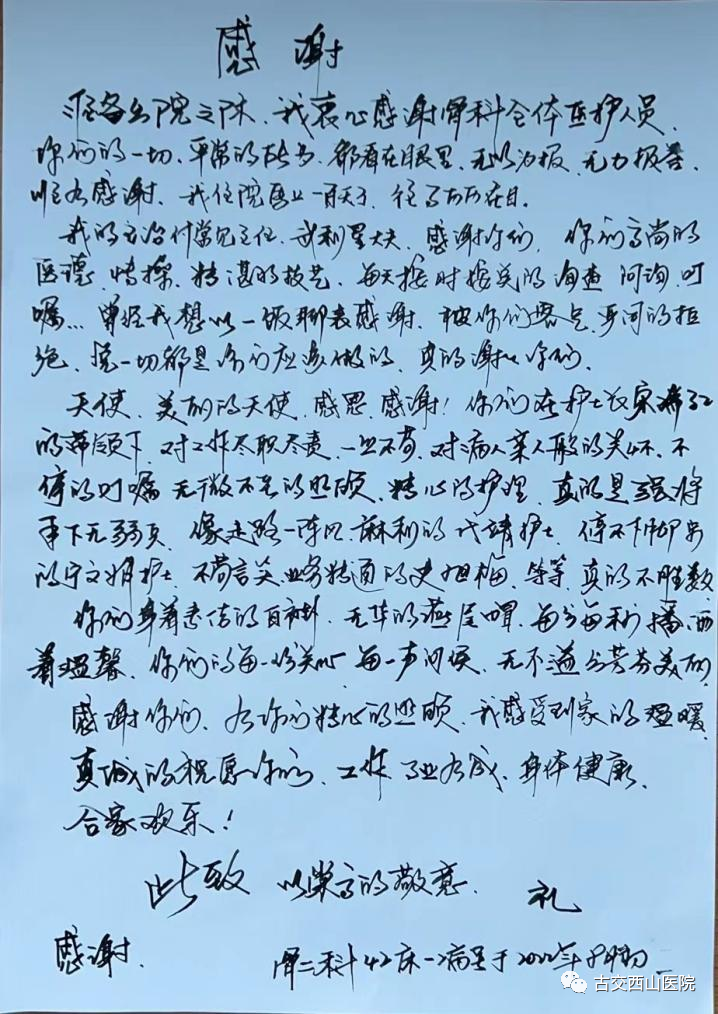 感谢
准备出院之际、我衷心感谢骨科全体医护人员、
你们的一切、平常的、都看在眼里、无以为报、无力报答、
唯有感谢、我住院一百天、历历在目。
我的主治付主任、大夫、感谢你们、你们高尚的
医德、情操、精湛的技艺、每天按时按点的询查、问询、叮
嘱…曾经我想以一饭聊表感谢、被你们委婉的拒
绝、说一切都是你们应该做的、真的谢谢你们。
天使、美丽的天使、感恩、感谢！你们在护士长宋
的带领下、对工作尽职尽责、一丝不苟、对病人亲人般的关怀、不
停的叮嘱、无微不至的照顾、精心的护理、真的是强将
手下无弱兵、像走路一阵风、麻利的代婧护士、停不下脚步
的宁文娟护士、不苟言笑、业务精通的史旭梅、等等、真的不胜数
你们穿着素洁的白衣、无华的燕尾帽、每分每秒播洒
着温馨、你们的每一份关心、每一声问候、无不溢出芳芬美丽、
感谢你们、有你们精心的照顾、我感受到家的温暖、
真诚的祝愿你们、工作事业有成、身体健康、
合家欢乐！
此致 以崇高的敬意、 礼
感谢、 骨二科42床一病号于2022年
古交西山医院